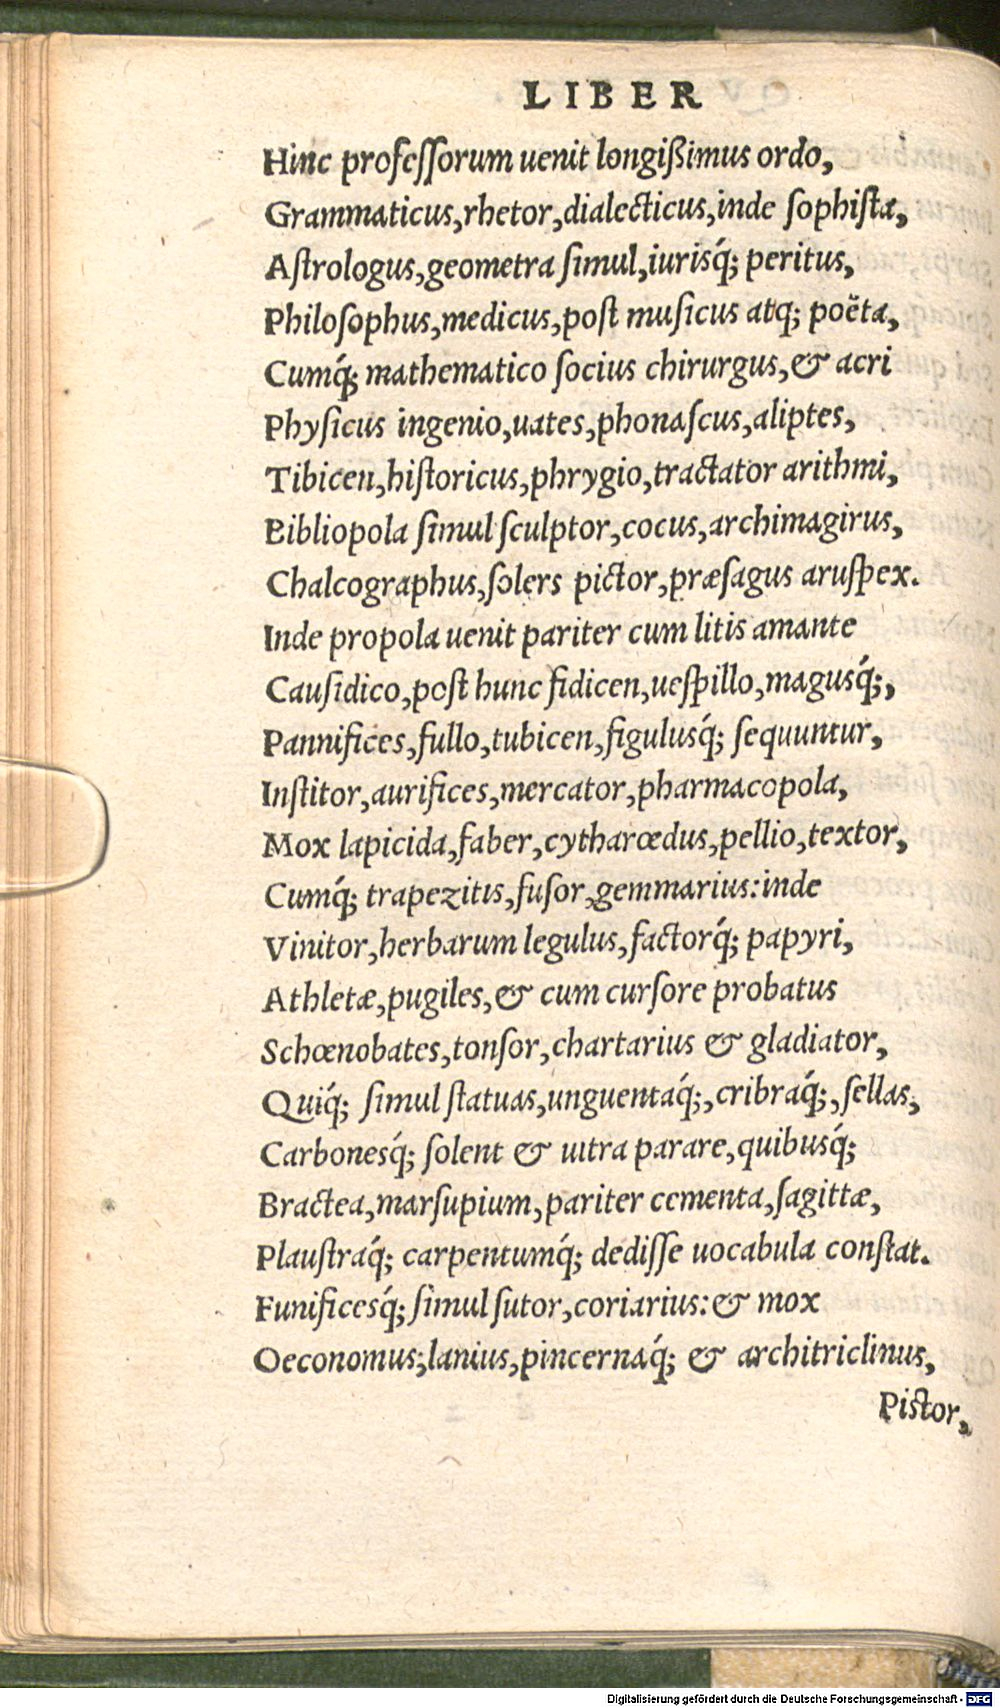 LIBER
Hinc professorum uenit longißimus ordo,
Grammaticus,rhetor,dialecticus,inde sophista,
Astrologus,geometra simul,iurisq́; peritus,
Philosophus,medicus,post musicus atq; poëta,
Cumq́; mathematico socius chirurgus,& acri
Physicus ingenio,uates,phonascus,aliptes,
Tibicen,historicus,phrygio,tractator arithmi,
Bibliopola simul sculptor,cocus,archimagirus,
Chalcographus,solers pictor,præsagus aruspex.
Inde propola uenit pariter cum litis amante
Causidico,post hunc fidicen,uespillo,magusq́;,
Pannifices,fullo,tubicen,figulusq́; sequuntur,
Institor,aurifices,mercator,pharmacopola,
Mox lapicida,faber,cytharœdus,pellio,textor,
Cumq́; trapezitis,fusor,gemmarius:inde
Vinitor,herbarum legulus,factorq́; papyri,
Athletæ,pugiles,& cum cursore probatus
Schœnobates,tonsor,chartarius & gladiator,
Quiq́; simul statuas,unguentaq́;,cribraq́;,sellas,
Carbonesq́; solent & uitra parare,quibusq́;
Bractea,marsupium,pariter cementa,sagittæ,
Plaustraq́; carpentumq́; dedisse uocabula constat.
Funificesq́; simul sutor,coriarius:& mox
Oeconomus;lanius,pincernaq́; & architriclinus,
Pistor,
Digitalisierung gefördert durch die Deutsche Forschungsgemeinschaft - DFG